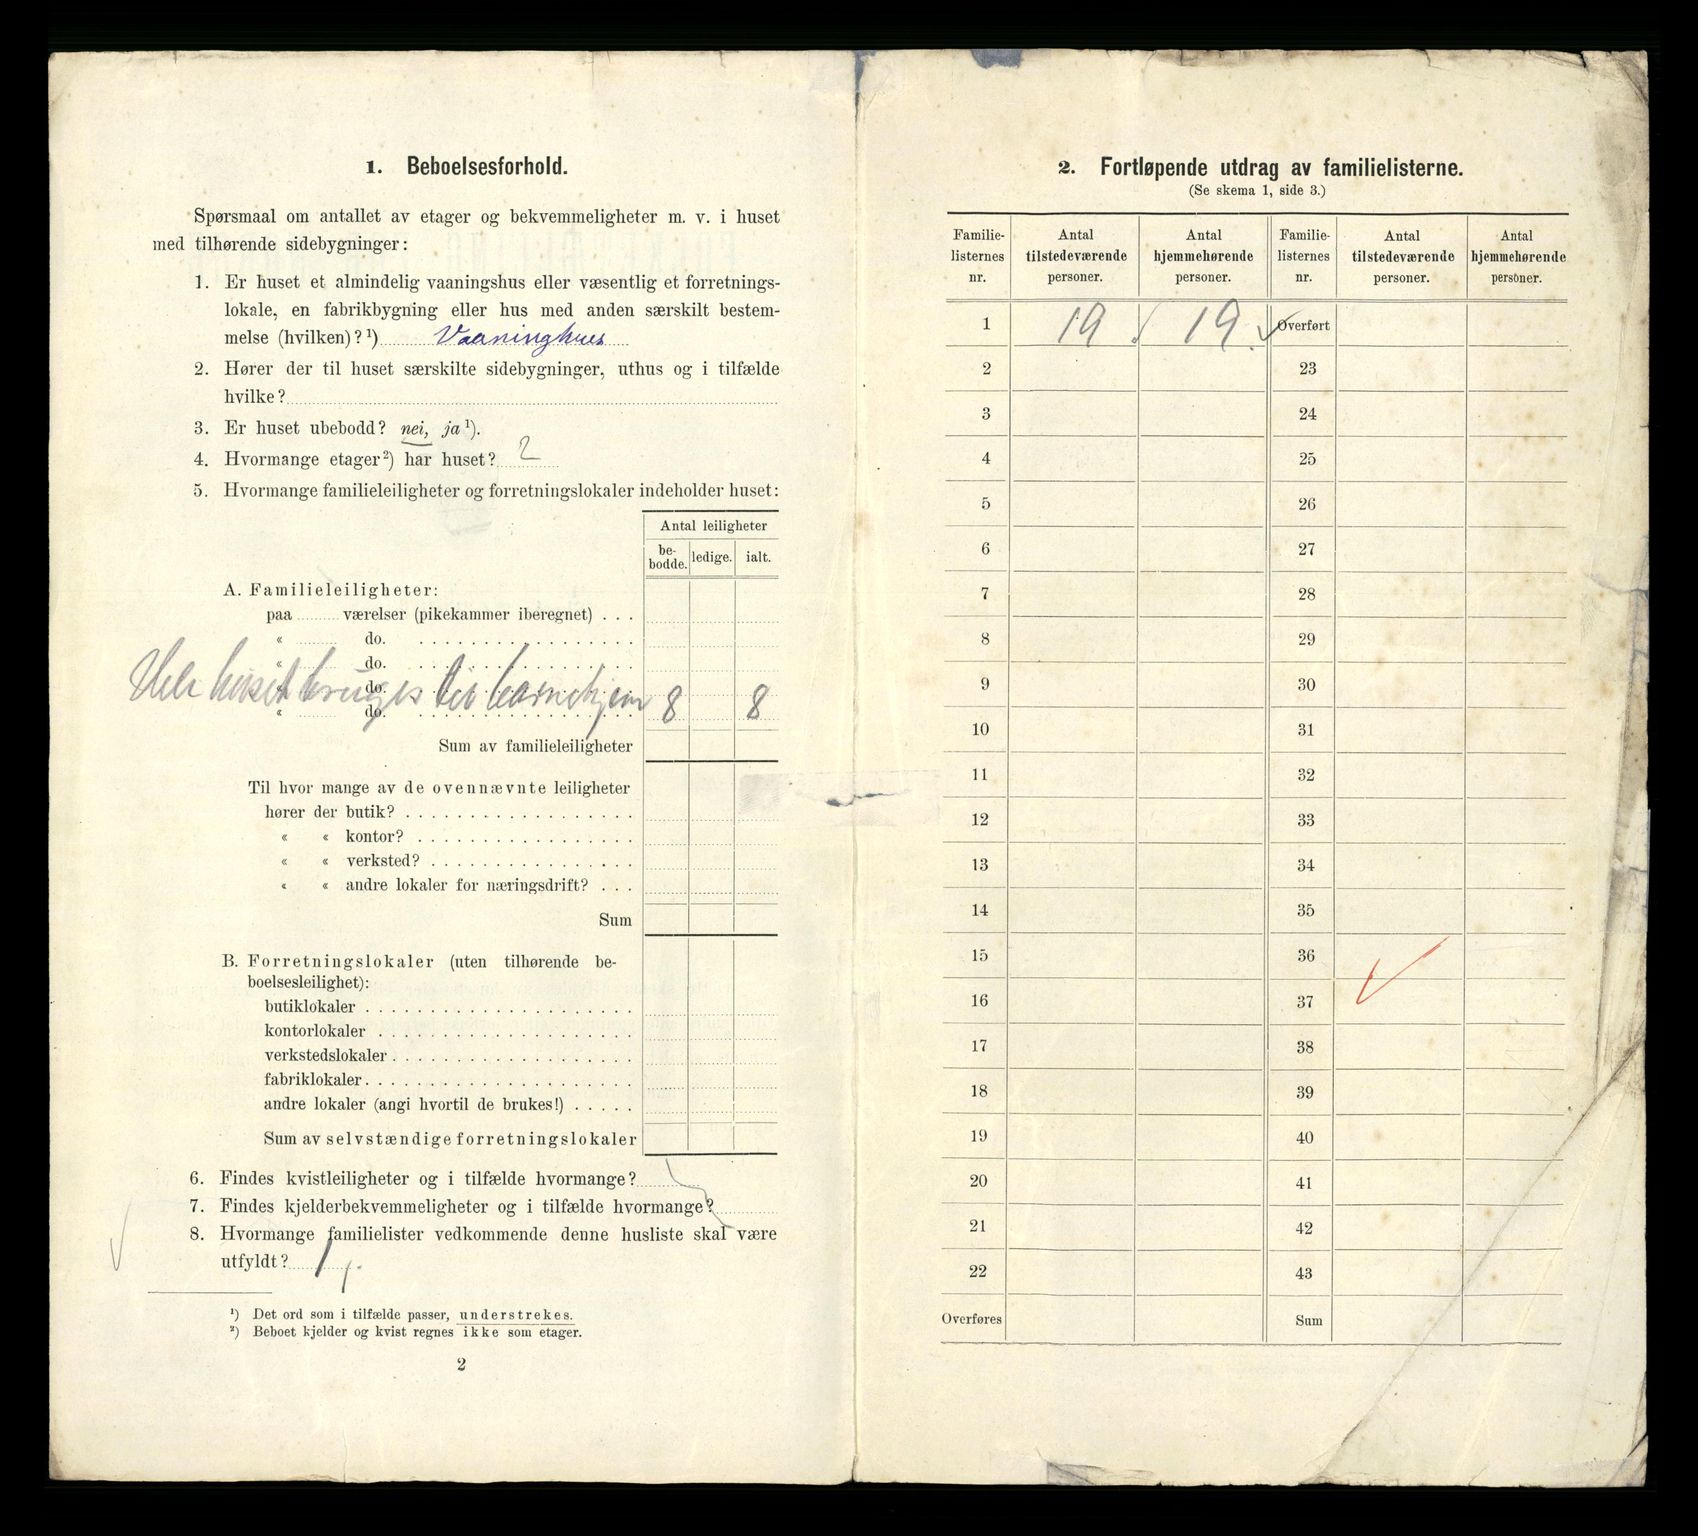 1. Beboelsesforhold.
Spørsmaal om antallet av etager og bekvemmeligheter m. v. i huset
med tilhørende sidebygninger:
1. Er huset et almindelig vaaningshus eller væsentlig et forretnings-
lokale, en fabrikbygning eller hus med anden særskilt bestem-
melse (hvilken)?¹) Vaaninghus
2. Hører der til huset særskilte sidebygninger, uthus og i tilfælde
hvilke?
3. Er huset ubebodd? nei, ja¹).
4. Hvormange etager²) har huset? 2
5. Hvormange familieleiligheter og forretningslokaler indeholder huset:
Antal leiligheter
be-
bodde. ledige. ialt.
A. Familieleiligheter:
paa ......... værelser (pikekammer iberegnet) . . .
« ......... do. . . . . . . . . . . . . . . . .
« ......... do. . . . . . . . . . . . . . . . .
« ......... do. . . . . . . . . . . . . . . . .
Hele huset bruges til barnehjem 8 8
« ......... do. . . . . . . . . . . . . . . . .
Sum av familieleiligheter
Til hvor mange av de ovennævnte leiligheter
hører der butik? . . . . . . . . . . . . . . . . . .
« « kontor? . . . . . . . . . . . . . . . . .
« « verksted? . . . . . . . . . . . . . . . .
« « andre lokaler for næringsdrift? . . .
Sum
B. Forretningslokaler (uten tilhørende be-
boelsesleilighet):
butiklokaler . . . . . . . . . . . . . . . . . . . . .
kontorlokaler . . . . . . . . . . . . . . . . . . . .
verkstedslokaler . . . . . . . . . . . . . . . . . . .
fabriklokaler . . . . . . . . . . . . . . . . . . . . .
andre lokaler (angi hvortil de brukes!) . . . . .
Sum av selvstændige forretningslokaler
6. Findes kvistleiligheter og i tilfælde hvormange?
7. Findes kjelderbekvemmeligheter og i tilfælde hvormange?
8. Hvormange familielister vedkommende denne husliste skal være
utfyldt? 1
¹) Det ord som i tilfælde passer, understrekes.
²) Beboet kjelder og kvist regnes ikke som etager.
2
2. Fortløpende utdrag av familielisterne.
(Se skema 1, side 3.)
Familie- Antal Antal Familie- Antal Antal
listernes tilstedeværende hjemmehørende listernes tilstedeværende hjemmehørende
nr. personer. personer. nr. personer. personer.
1 19 19 Overført
2 23
3 24
4 25
5 26
6 27
7 28
8 29
9 30
10 31
11 32
12 33
13 34
14 35
15 36
16 37
17 38
18 39
19 40
20 41
21 42
22 43
Overføres Sum